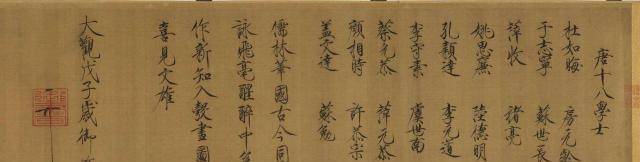 唐十八學士
杜如晦 房元齡
于志寧 蘇世長
薛收 褚亮
姚思廉 陸德明
孔穎達 李元道
李守素 虞世南
蔡允恭 薛元恭
顏相時 許恭宗
蓋文達 蘇勗
儒林華國古今同
詠飛毫醒醉中
作新知入彀畫圖
喜見文雄
大觀戊子歲御